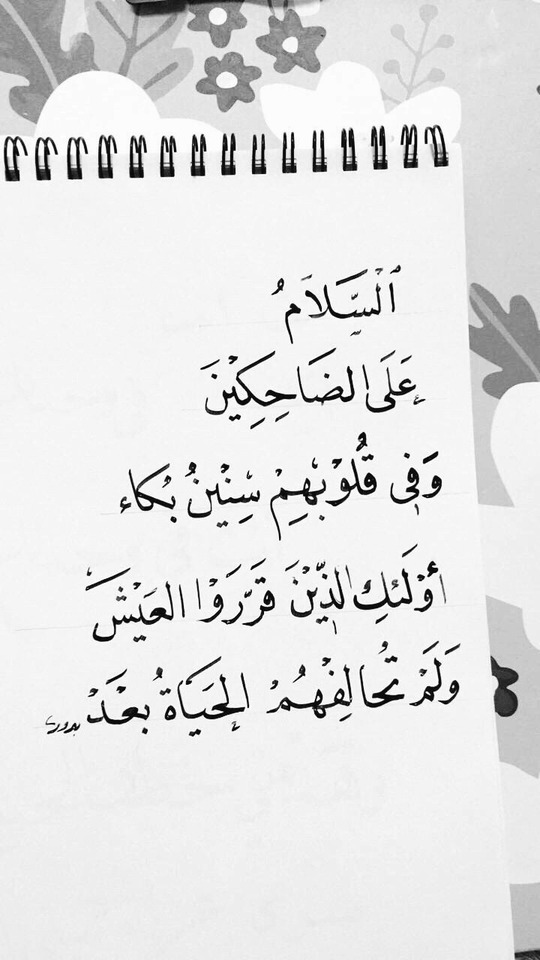 ٱلسَّلَامُ
عَلَى الضَاحِكِيْنَ
وَفِي قُلُوْبِهِمْ سِنِيْنُ بُكاء
أوْلَئِكَ الذِّيْنَ قَرَّرَوْا العَيْشَ
وَلَمْ تُحالِفْهُمْ الحَيَاةُ بعَدْ